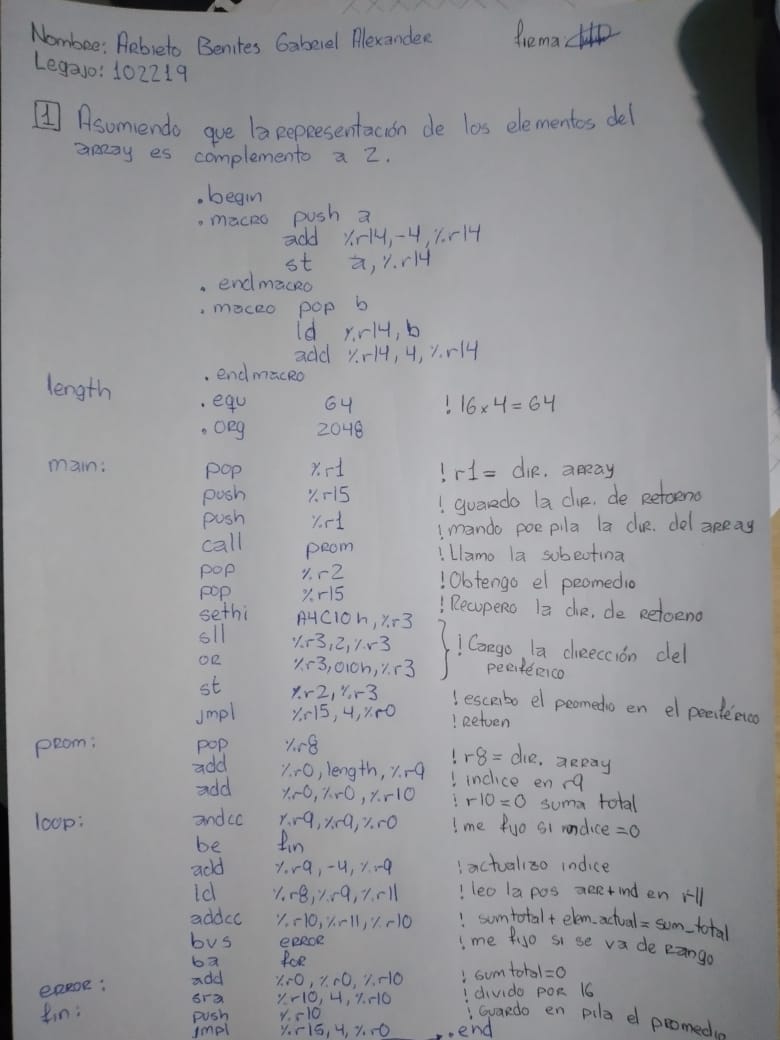 Nombre: Arbieto Benites Gabriel Alexander firma:
Legajo: 102219
1 Asumiendo que la representación de los elementos del
array es complemento a 2.
.begin
.macro push a
add %r14,-4,%r14
st a,%r14
.endmacro
.macro pop b
ld %r14,b
add %r14,4,%r14
.endmacro
length .equ 64 ! 16x4=64
.org 2048
main: pop %r1 ! r1= dir. array
push %r15 ! guardo la dir. de retorno
push %r1 ! mando por pila la dir. del array
call prom ! Llamo la subrutina
pop %r2 ! Obtengo el promedio
pop %r15 ! Recupero la dir. de retorno
sethi A4C10h,%r3
sll %r3,2,%r3 } ! Cargo la dirección del
or %r3,010h,%r3 periférico
st %r2,%r3 ! escribo el promedio en el periférico
jmpl %r15,4,%r0 ! return
prom: pop %r8 ! r8= dir. array
add %r0,length,%r9 ! indice en r9
add %r0,%r0,%r10 ! r10=0 suma total
loop: andcc %r9,%r9,%r0 ! me fijo si indice=0
be fin
add %r9,-4,%r9 ! actualizo indice
ld %r8,%r9,%r11 ! leo la pos arr+ind en r11
addcc %r10,%r11,%r10 ! sumtotal + elem_actual= sum_total
bvs error ! me fijo si se va de rango
ba for
error: add %r0,%r0,%r10 ! sumtotal=0
sra %r10,4,%r10 ! divido por 16
fin: push %r10 ! Guardo en pila el promedio
jmpl %r15,4,%r0 .end